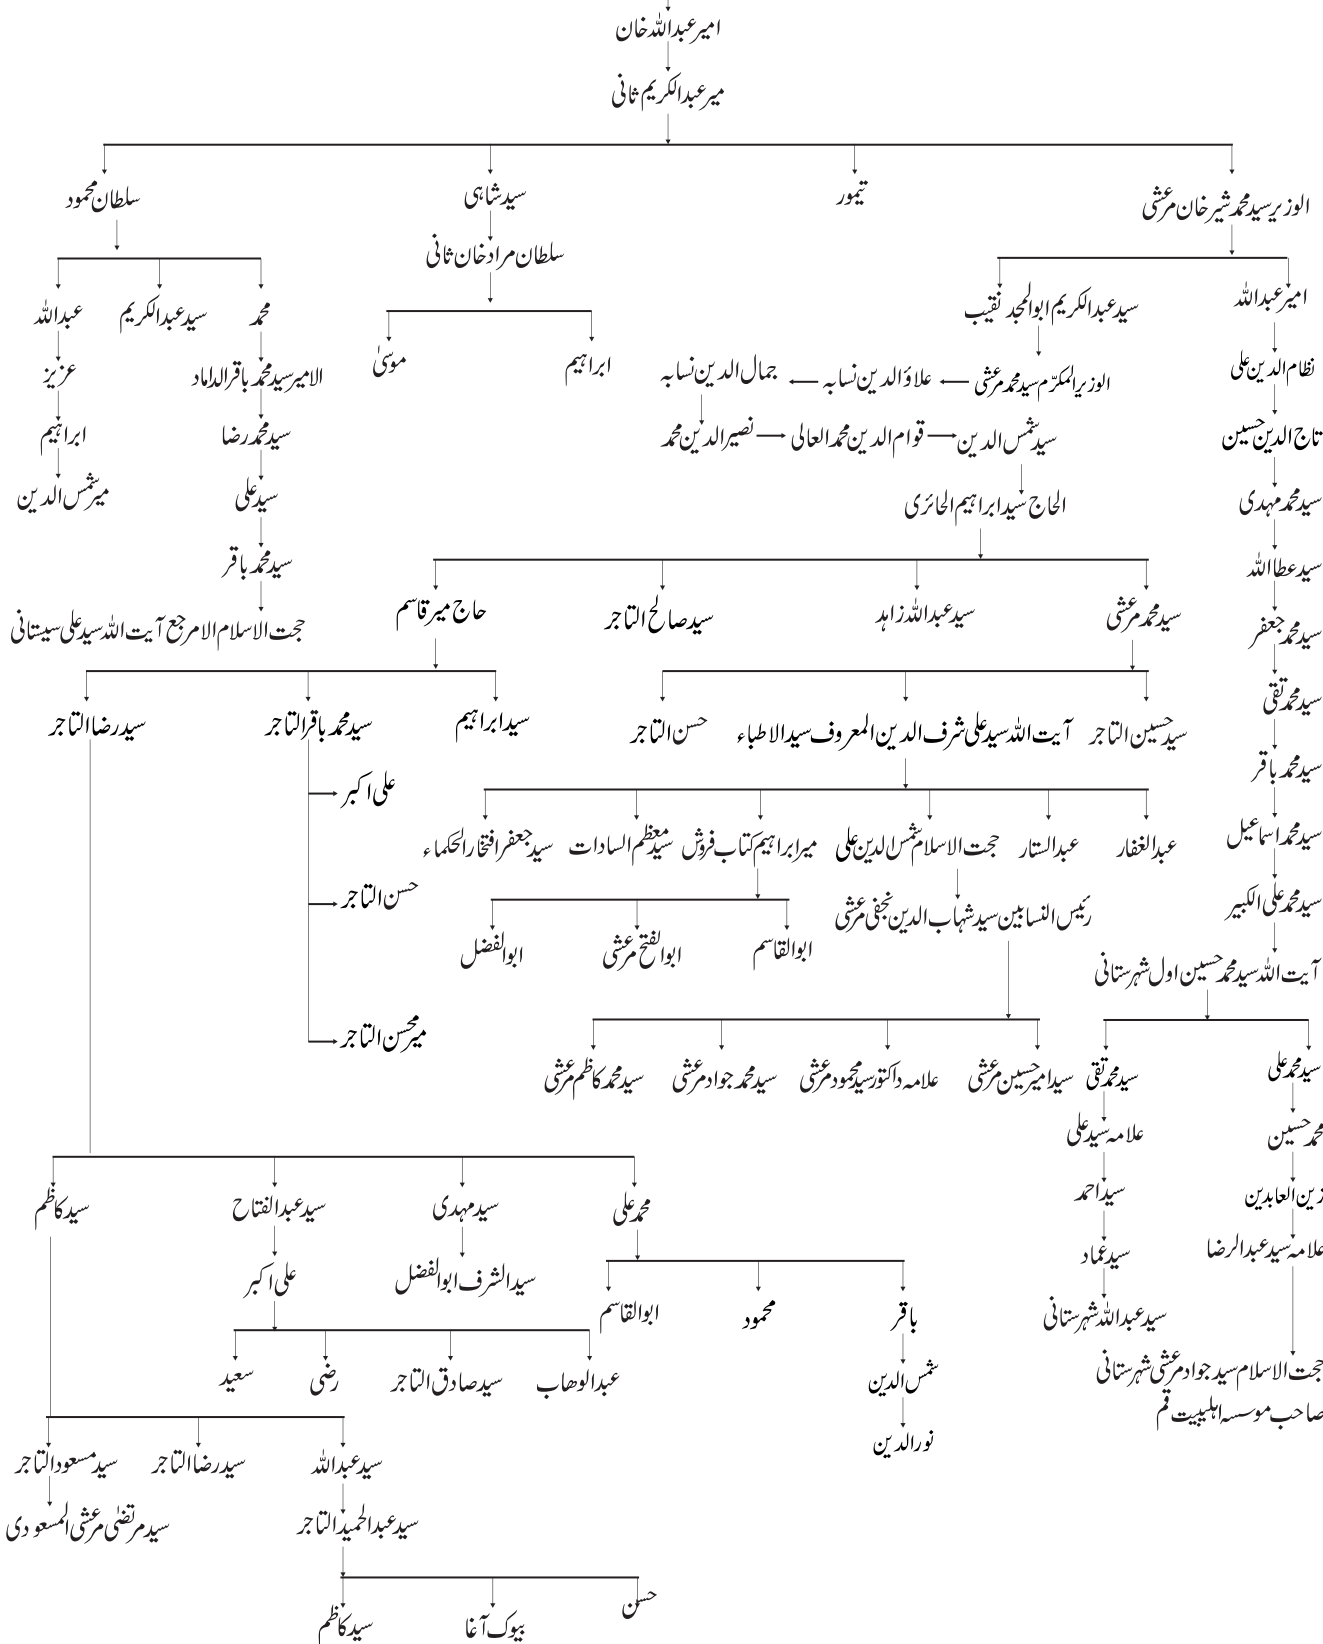 امیر عبداللہ خان
میر عبدالکریم ثانی
الوزیر سید محمد شیر خان مرعشی
تیمور
سید شاہی
سلطان محمود
سلطان مراد خان ثانی
امیر عبداللہ
سید عبدالکریم ابوالمجد نقیب
محمد
سید عبدالکریم
عبداللہ
ابراہیم
موسیٰ
نظام الدین علی
الوزیر المکرّم سید محمد مرعشی
علاؤ الدین نسابہ
جمال الدین نسابہ
الامیر سید محمد باقر الداماد
عزیز
تاج الدین حسین
سید شمس الدین
قوام الدین محمد العالی
نصیر الدین محمد
سید محمد رضا
ابراہیم
سید محمد مہدی
الحاج سید ابراہیم الحائری
سید علی
میر شمس الدین
سید عطا اللہ
سید محمد باقر
سید محمد مرعشی
سید عبداللہ زاہد
سید صالح التاجر
حاج میر قاسم
سید محمد جعفر
حجت الاسلام الامرجع آیت اللہ سید علی سیستانی
سید محمد تقی
سید حسین التاجر
آیت اللہ سید علی شرف الدین المعروف سید الاطباء
حسن التاجر
سید ابراہیم
سید محمد باقر التاجر
سید رضا التاجر
سید محمد باقر
علی اکبر
سید محمد اسماعیل
عبدالغفار
عبدالستار
حجت الاسلام شمس الدین علی
میر ابراہیم کتاب فروش
سید معظم السادات
سید جعفر افتخار الحکماء
سید محمد علی الکبیر
رئیس النسابین سید شہاب الدین نجفی مرعشی
حسن التاجر
ابوالقاسم
ابوالفتح مرعشی
ابوالفضل
آیت اللہ سید محمد حسین اول شہرستانی
میر محسن التاجر
سید محمد علی
سید محمد تقی
سید امیر حسین مرعشی
علامہ داکتور سید محمود مرعشی
سید محمد جواد مرعشی
سید محمد کاظم مرعشی
محمد حسین
علامہ سید علی
زین العابدین
سید احمد
محمد علی
سید مہدی
سید عبدالفتاح
سید کاظم
علامہ سید عبدالرضا
سید عماد
سید الشرف ابوالفضل
علی اکبر
سید عبداللہ شہرستانی
باقر
محمود
ابوالقاسم
حجت الاسلام سید جواد مرعشی شہرستانی
صاحب موسسہ اہلیبیت قم
شمس الدین
عبدالوھاب
سید صادق التاجر
رضی
سعید
نور الدین
سید عبداللہ
سید رضا التاجر
سید مسعود التاجر
سید عبدالحمید التاجر
سید مرتضیٰ مرعشی المسعودی
حسن
بیوک آغا
سید کاظم